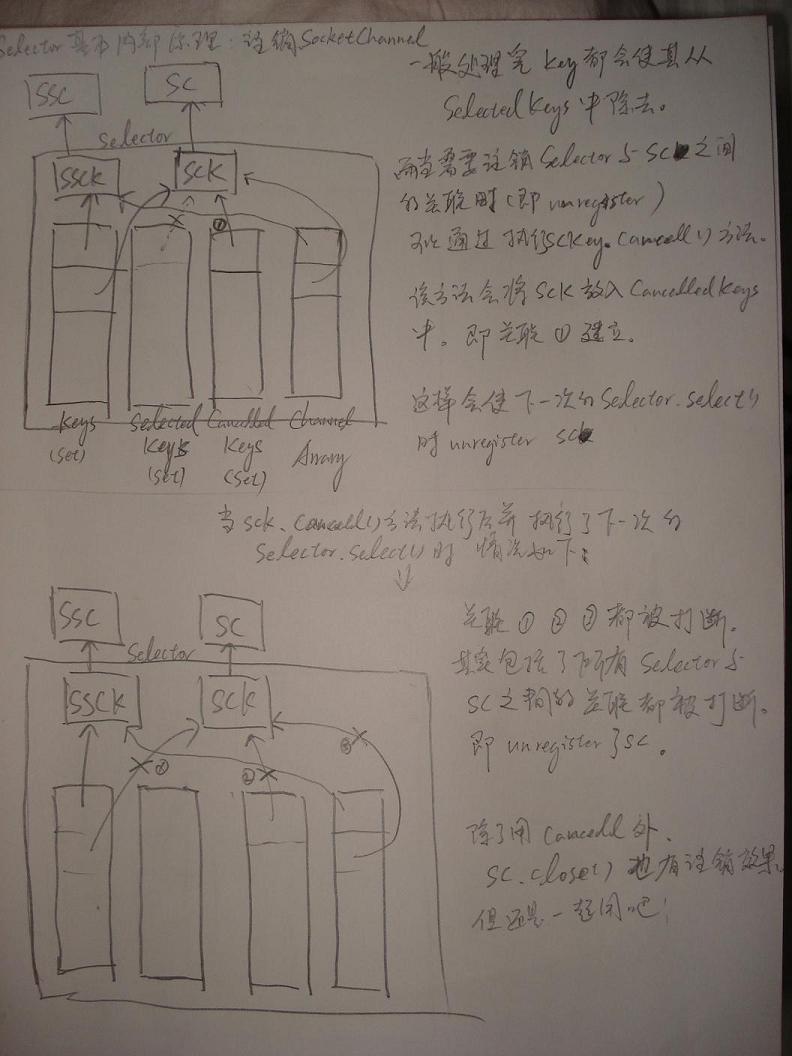 Selector基本内部原理：注销SocketChannel
SSC
SC
Selector
SSCK
SCK
①
Keys
(Set)
Selected
Keys
(Set)
Cancelled
Keys
(Set)
Channel
Array
一般处理完 key 都会使其从
Selected Keys 中除去。
而当需要注销 Selector 与 SC 之间
的关联时（即 unregister）
可以通过执行SCKey.Cancell()方法。
该方法会将 SCK 放入 Cancelled Keys
中。即关联①建立。
这样会使下一次的 Selector.select()
时 unregister SC
当 sck.Cancell()方法执行后并执行了下一次的
Selector.select() 时 情况如下：
SSC
SC
Selector
SSCK
SCK
②
①
③
关联①②③都被打断。
其实包括了所有 Selector 与
SC 之间的关联都被打断。
即 unregister 了 SC。
除了用 Cancell 外、
SC.close() 也有注销效果。
但还是一起用吧！